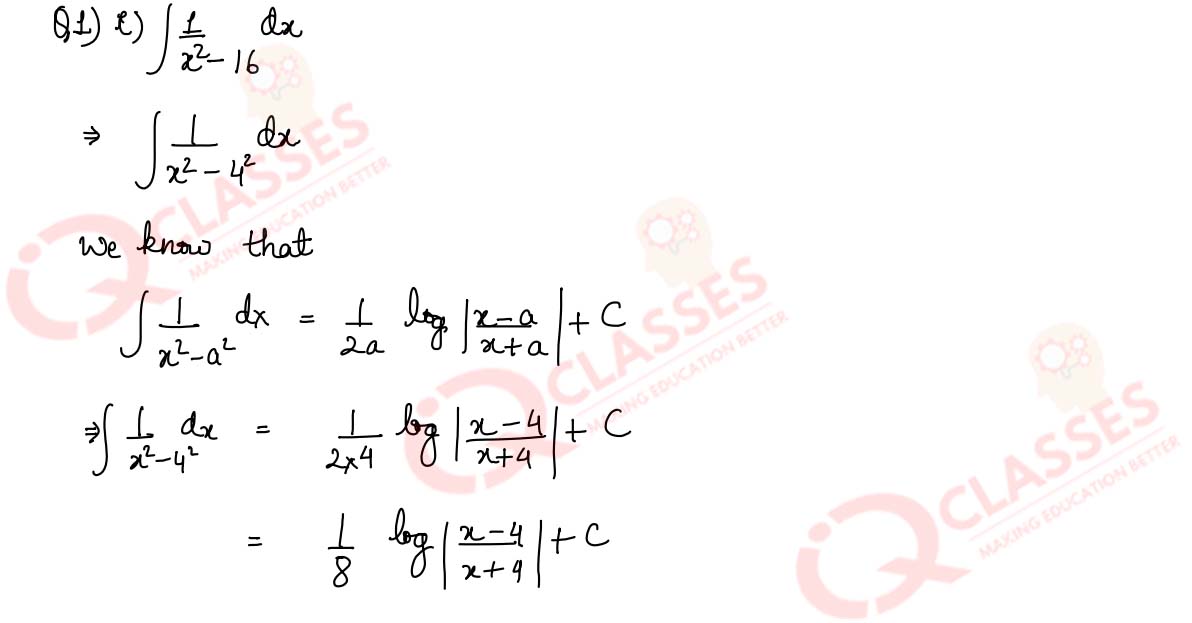 Q1) i) ∫ 1/(x² – 16) dx
⇒ ∫ 1/(x² – 4²) dx
We know that
∫ 1/(x² – a²) dx = 1/2a log |(x – a)/(x + a)| + C
⇒ ∫ 1/(x² – 4²) dx = 1/(2×4) log |(x – 4)/(x + 4)| + C
= 1/8 log |(x – 4)/(x + 4)| + C
IQ CLASSES
MAKING EDUCATION BETTER
IQ CLASSES
MAKING EDUCATION BETTER
IQ CLASSES
MAKING EDUCATION BETTER